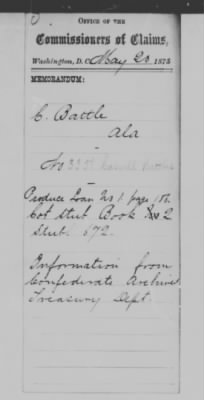 OFFICE OF THE
Commissioners of Claims,
Washington, D.C. May 20 1875
MEMORANDUM:
C. Battle
Ala
No 33
Produce Loan No 1. page 156.
Cot. Stub Book No 2
Stub. 672.
Information from
Confederate Archives
Treasury Dept.